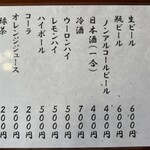 生ビール 600円
瓶ビール 600円
ノンアルコールビール 400円
日本酒(一合) 400円
冷酒 700円
ウーロンハイ 500円
レモンハイ 500円
ハイボール 500円
コーラ 200円
オレンジジュース 200円
緑茶 200円